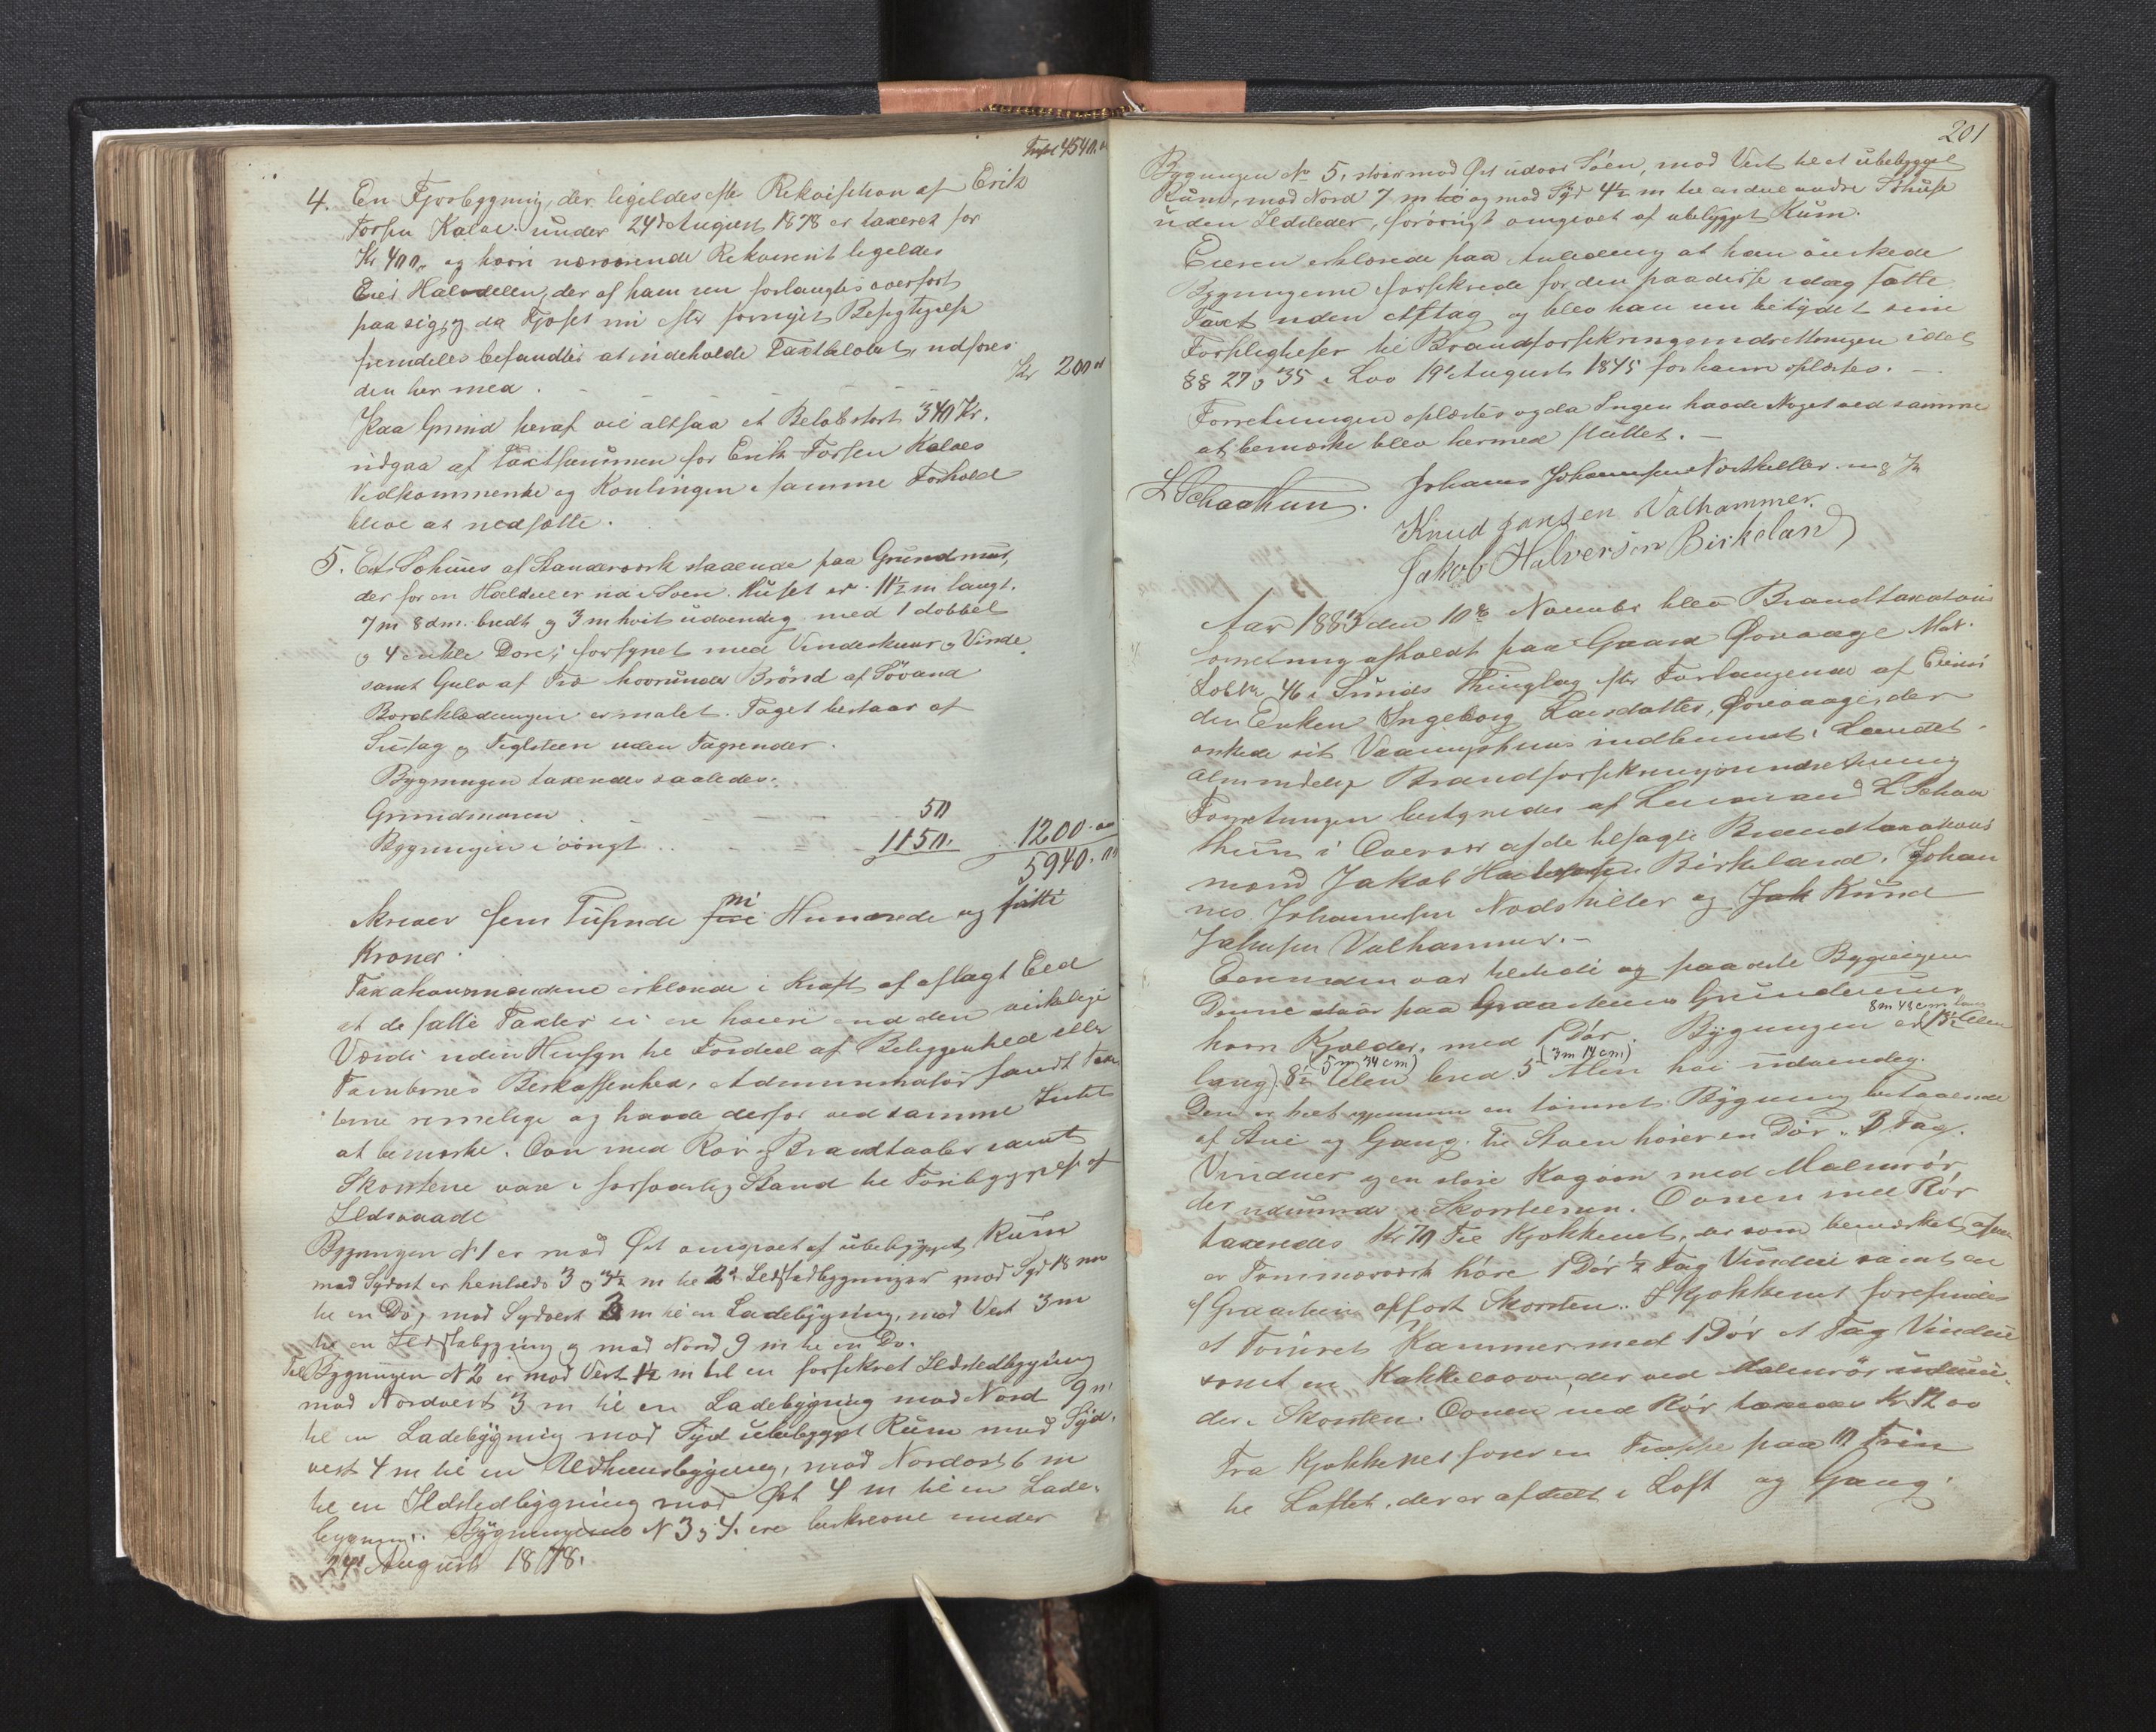 4540.
4. En Fjosbygning, der ligeledes efter Rekvisition af Erik
Forsen Kalve under 24de August 1878 er taxeret for
Kr 400,, og hvori nærværende Rekvirent ligeledes
Eier Halvdelen, der af ham nu forlangtes overført
paa sig, og da Fjøset nu efter fornyet Besigtigelse
fremdeles befandtes at indeholde Taxtbeløbet, udføres
den her med . - - - Kr 200
Paa Grund heraf vil altsaa et Beløb stort 340 Kr.
udgaa af Taxtsummen for Erik Forsen Kalves
Vedkommende og Kontingen i samme Forhold
blive at nedsætte.
5. Et Søhuus af Standværk staaende paa Grundmur,
der for en Halvdeel er ud i Søen. Huset er 11½ m langt.
7 m 8 dm. bredt og 3 m høit udvendig med 1 dobbel
og 4 enkle Døre, forsynet med Vindeskuur og Vinde
samt Gulv af Træ hvorunder Brönd af Sövand
Bordklædningen er malet. Taget bestaar af
Sutag og Teglsteen uden Tagrender.
Bygningen taxeredes saaledes:
Grundmuren - - - 50
Bygningen i øvrigt . . . 1150. 1200.00
5940.00
skriver fem Tusinde fire ni Hundrede og fütti
Kroner.
Taxationsmændene erklærede i Kraft af aflagt Eed
at de satte Taxter ei ere høiere end den virkelige
Værdi uden Hensyn til Fordeel af Beliggenhed eller
Tomternes Beskaffenhed, Administrator fandt Tax
terne rimelige og havde derfor ved samme Intet
at bemærke. Ovn med Rør og Brandtavler samt
Skorstene vare i forsvarlig Stand til Forebyggelse af
Ildsvaade
Bygningen N 1 er mod Øst omgivet af ubebygget Rum
mod Sydost er henholdsv 3 og 3½ m til 2de Ildstedbygninger mod Syd 18 m
til en Do, mod Sydvest 3 m til en Ladebygning, mod Vest 3 m
til en Ildstedbygning og mod Nord 9 m til en Do.
Til Bygningen N 2 er mod Vest 1½ m til en forsikret Ildstedbygning
mod Nordvest 3 m til en Ladebygning mod Nord 9 m
til en Ladebygning mod Syd ubebygget Rum mod Syd.
vest 4 m til en Udhuusbygning, mod Nordost 6 m
til en Ildstedbygning mod Øst 4 m til en Lade.
bygning. Bygningerne N 3 og 4. ere beskrevne under
24de August 1878.
201
Bygningen No 5, støder mod Øst udover Söen, mod Vest til et ubebygget
Rum, mod Nord 7 m til og mod Syd 4½ m til endeel andre Söhuse
uden Ildsteder, forövrigt omgivet af ubebygget Rum.
Eieren erklærede paa Anledning at han önskede
Bygningerne forsikrede for den paa disse idag satte
Taxt uden Aftag og blev han nu betydet sine
Forpligtelser til Brandforsikringsindretningen idet
§§ 27 og 35 i Lov 19de August 1845 for ham oplæstes. -
Forretningen oplæstes og da Ingen havde Noget ved samme
at bemærke blev hermed sluttet. -
L Schaathun. Johannes Johannesen Nordheller m p P
Knud Jansen Valhammer.
Jakob Halversen Birkeland
Aar 1883 den 10de November blev Brandtaxations
forretning afholdt paa Gaard Øvvaage Mat.
Løb No 46 i Sunds Thinglag efter Forlangende af Eierin
den Enken Ingeborg Larsdatter, Øvvaage, der
ønskede sit Vaaningshuus indlemmet i Landets
almindelige Brandforsikringsindretning
Forretningen bestyredes af Lensmand L Schaa
thun i Overvær af de tilsagte Brandtaxations
mænd Jakob Halversen Birkeland, Johan
nes Johannesen Nodshiller og Jak Knud
Jahnsen Valhammer. -
Eierinden var tilstede og paaviste Bygningen
Denne staar paa Graasteens Grundmur
8 m 48 cm lang
hvori Kjælder, med 1 Dör. Bygningen er 13½ Alen
(5 m 34 cm) (3 m 14 cm)
lang, 8½ Alen bred 5 Alen höi udvendig.
Den er helt igjennem en tömret Bygning bestaaende
af Stue og Gang. Til Stuen hörer en Dör, 3 Fag.
Vinduer og en störe Kogovn med Malmrör,
der udmunder i Skorstenen. Ovnen med Rör
taxeredes Kr 70 Til Kjøkkenet, der som bemærket ogsaa
er Tømmerværk höre 1 Dör ½ Fag Vindue samt en
af Graasteen opført Skorsten. I Kjøkkenet forefindes
et Tömret Kammer med 1 Dör et Fag Vindue
samt en Kakkelovn, der ved Malmrör udmun.
der i Skorsten. Ovnen med Rör taxeres Kr 12 00
Fra Kjøkkenet fører en Trappe paa 10 Trin
til Loftet, der er afdeelt i Loft og Gang.